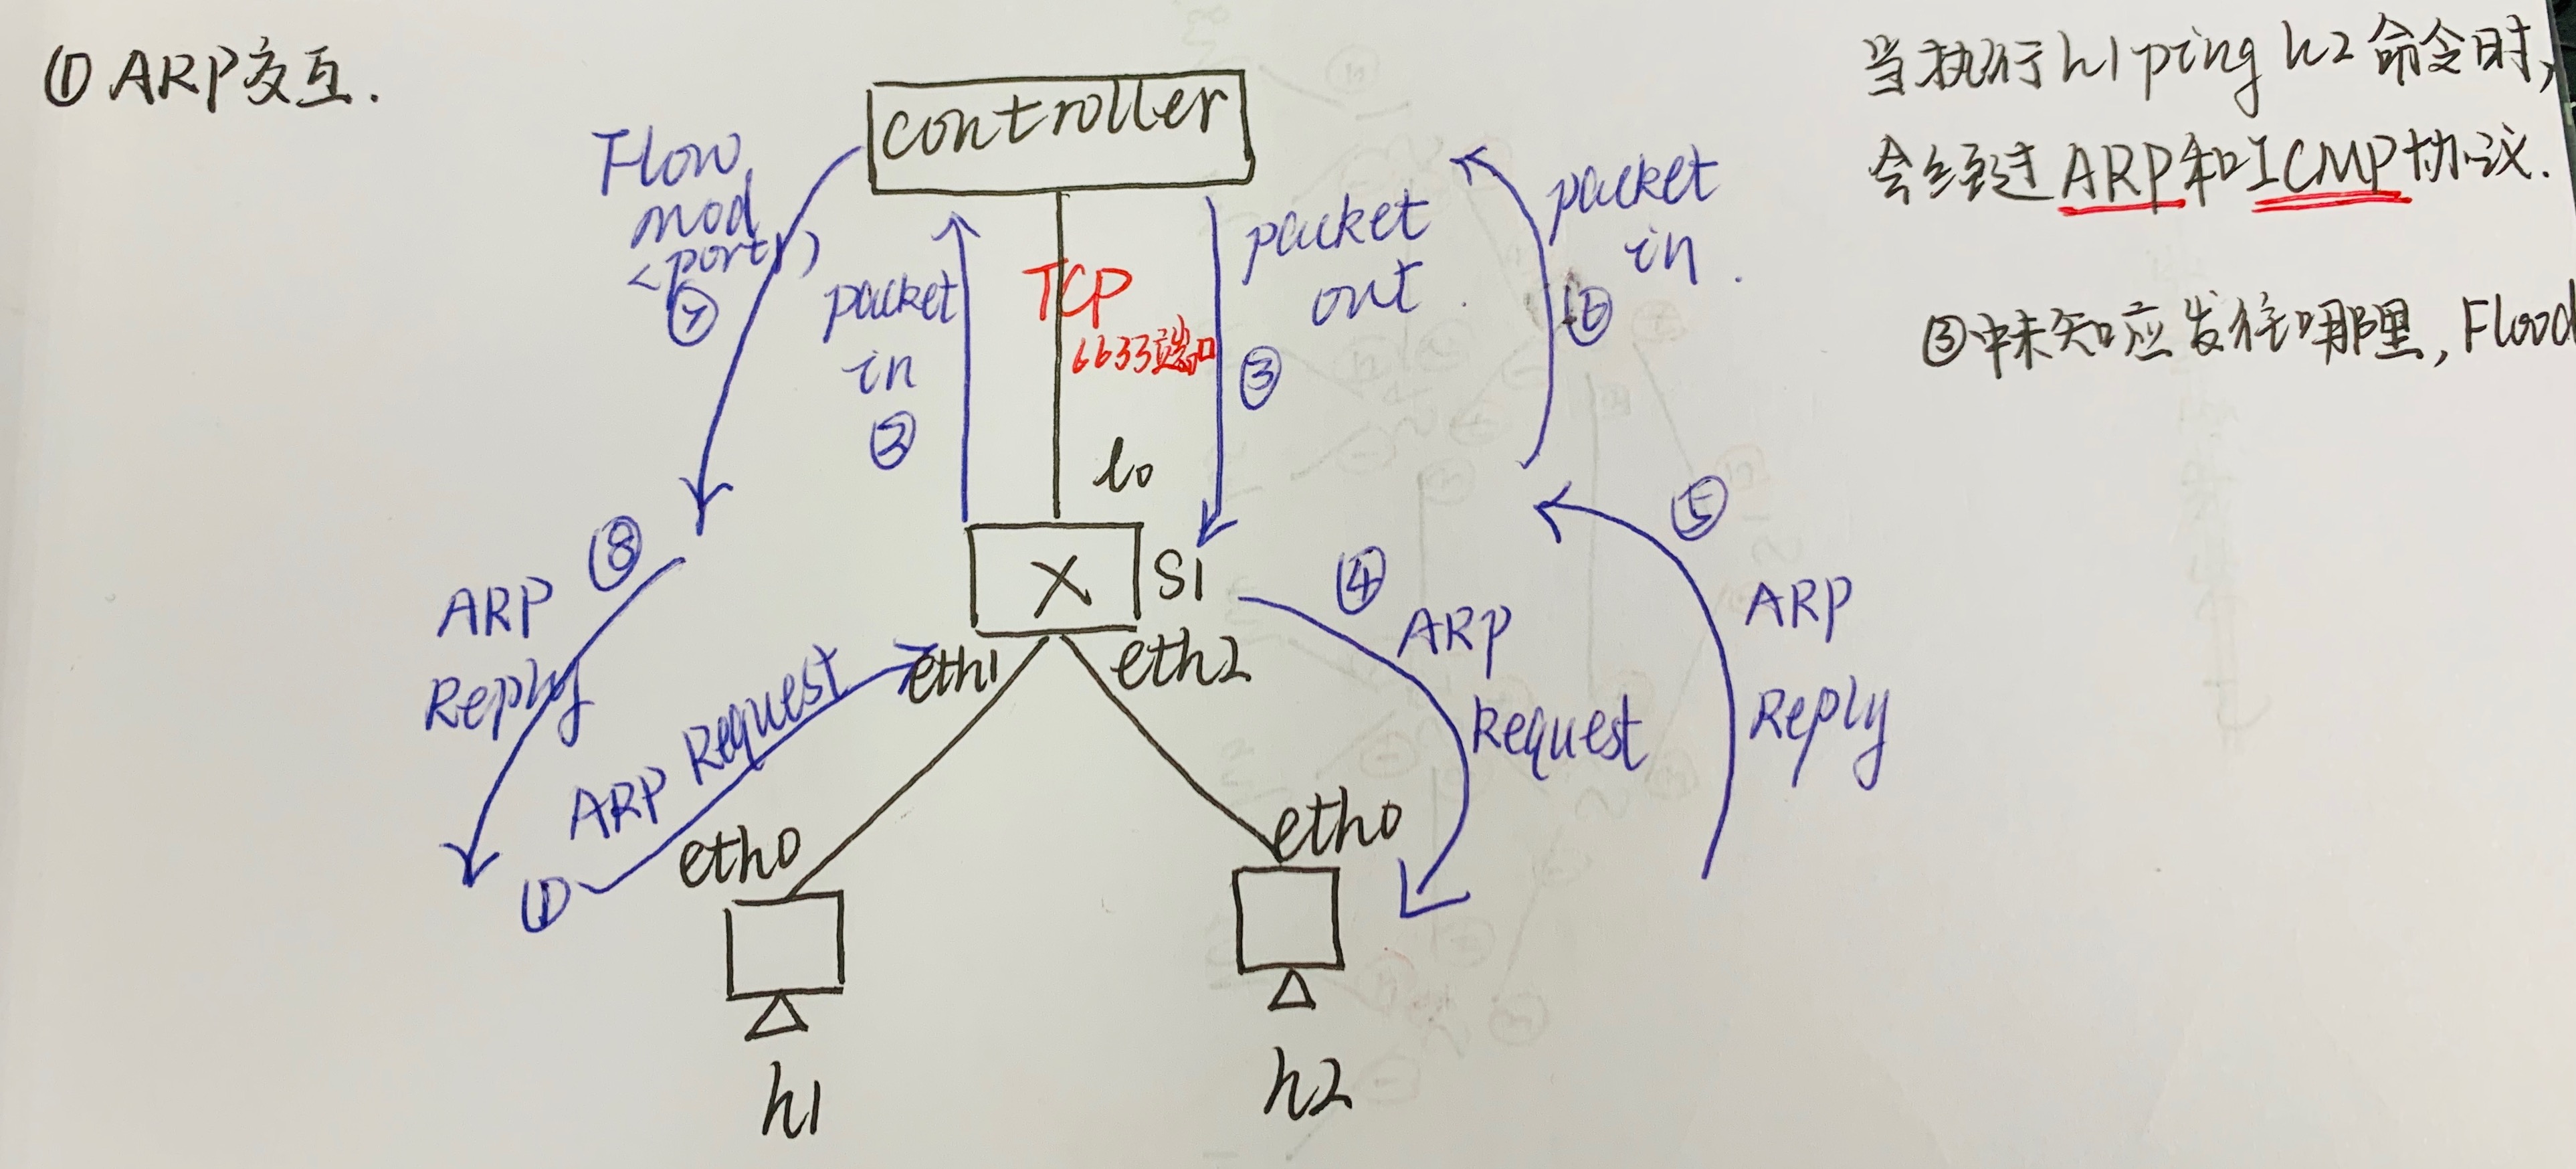 ① ARP交互.
当执行h1 ping h2 命令时,
会经过ARP和ICMP协议.
③中未知应发往哪里, Flood
controller
Flow
mod
<port1>
⑦
packet
in
②
TCP
6633端口
packet
out
③
packet
in
⑥
lo
X
S1
eth1
eth2
⑧
ARP
Reply
ARP Request
①
④
ARP
Request
⑤
ARP
Reply
eth0
eth0
h1
h2